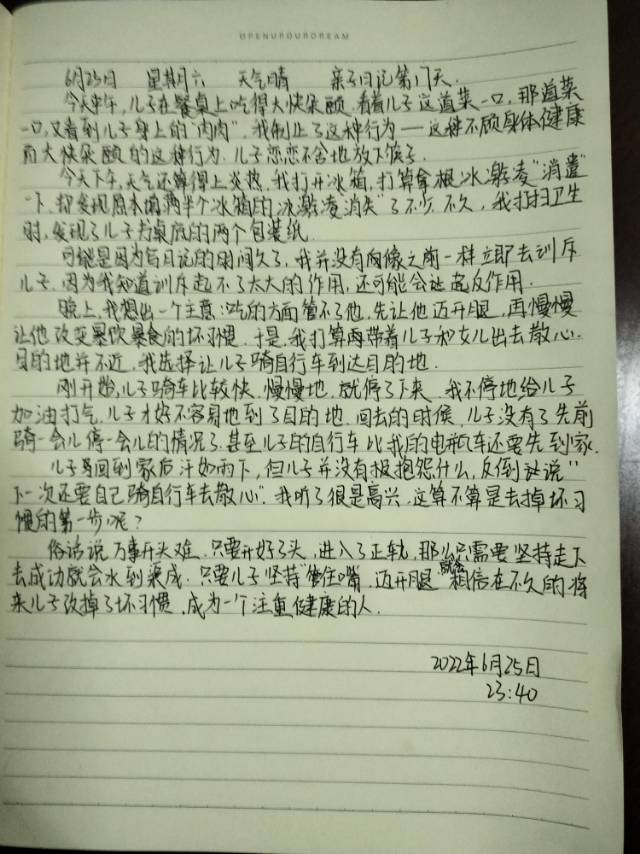 OPENUPOURDREAM
6月25日 星期六 天气晴 亲子日记第17天.
今天中午,儿子在餐桌上吃得大快朵颐.看着儿子这道菜一口,那道菜
一口,又看到儿子身上的"肉肉",我制止了这种行为——这种不顾身体健康
而大快朵颐的这种行为.儿子恋恋不舍地放下筷子.
今天下午,天气还算得上炎热.我打开冰箱,打算拿根冰激凌"消遣"
一下.却发现原本满满半个冰箱的冰激凌"消失"了不少.不久,我打扫卫生
时,发现了儿子书桌底的两个包装纸.
可能是因为写日记的时间久了,我并没有像之前一样立即去训斥
儿子.因为我知道训斥起不了太大的作用,还可能会起反作用.
晚上,我想出一个主意:吃的方面管不了他,先让他迈开腿,再慢慢
让他改变暴饮暴食的坏习惯.于是,我打算带着儿子和女儿出去散心.
目的地并不近,我选择让儿子骑自行车到达目的地.
刚开始,儿子骑车比较快.慢慢地,就停了下来.我不停地给儿子
加油打气.儿子才好不容易地到了目的地.回去的时候,儿子没有了先前
骑一会儿停一会儿的情况了.甚至儿子的自行车比我的电瓶车还要先到家.
儿子回到家后汗如雨下,但儿子并没有抱怨什么,反倒说"
下一次还要自己骑自行车去散心".我听了很是高兴.这算不算是去掉坏习
惯的第一步呢?
俗话说万事开头难.只要开好了头,进入了正轨,那么只需要坚持走下
去成功就会水到渠成.只要儿子坚持"管住嘴,迈开腿"就会相信在不久的将
来儿子改掉了坏习惯,成为一个注重健康的人.
2022年6月25日
23:40